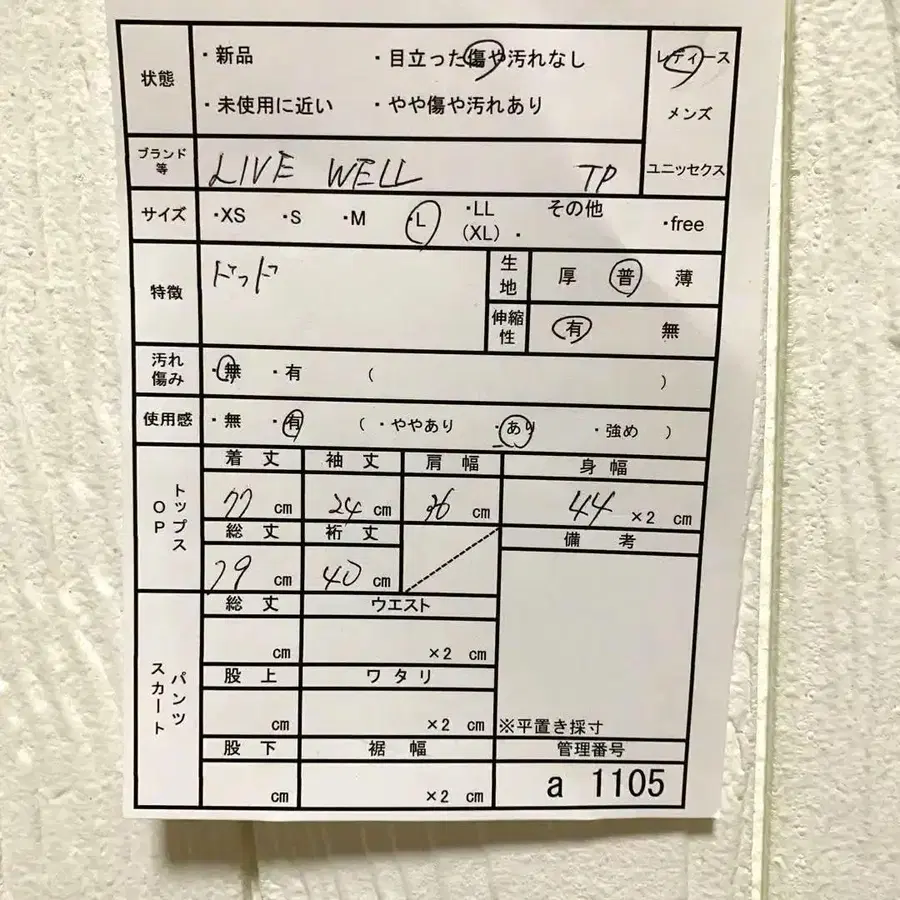 状態
・新品 ・目立った傷や汚れなし
・未使用に近い ・やや傷や汚れあり
レディース
メンズ
ユニッセクス
ブランド等 LIVE WELL TP
サイズ ・XS ・S ・M ・L ・LL (XL) その他 ・ ・free
特徴 ドット
生地 厚 普 薄
伸縮性 有 無
汚れ傷み ・無 ・有 ( )
使用感 ・無 ・有 ( ・ややあり ・あり ・強め )
トップス OP
着丈 袖丈 肩幅 身幅
77 cm 24 cm 36 cm 44 ×2 cm
総丈 裄丈 備考
79 cm 40 cm
パンツ スカート
総丈 ウエスト
cm ×2 cm
股上 ワタリ
cm ×2 cm
※平置き採寸
股下 裾幅 管理番号
cm ×2 cm a 1105